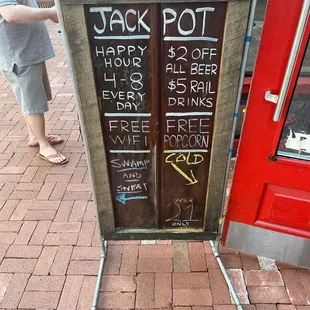 JACK POT
HAPPY
HOUR
4-8
EVERY
DAY
FREE
WIFI
SWAMP
AND
SWEAT
$2 OFF
ALL BEER
$5 RAIL
DRINKS
FREE
POPCORN
COLD
21
ONLY